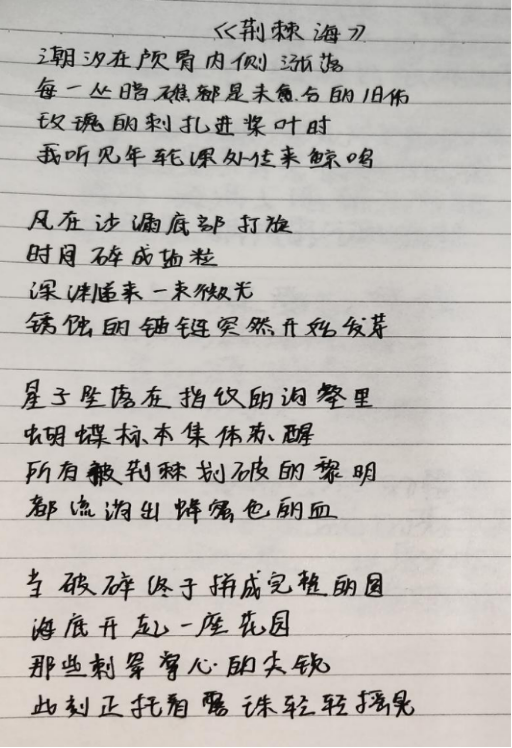 《荆棘海》
潮汐在颅骨内侧涨落
每一丛暗礁都是未愈合的旧伤
玫瑰的刺扎进桨叶时
我听见年轮深处传来鲸鸣
风在沙漏底部打旋
时间碎成盐粒
深渊递来一束微光
锈蚀的锚链突然开始发芽
星子坠落在指纹的沟壑里
蝴蝶标本集体苏醒
所有被荆棘划破的黎明
都流淌出蜂蜜色的血
当破碎终于拼成完整的圆
海底开起一座花园
那些刺穿掌心的尖锐
此刻正托着露珠轻轻摇晃